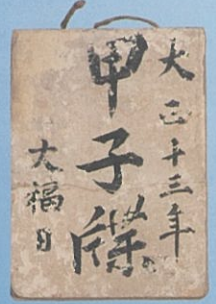 大正十三年
甲子牒
大福日